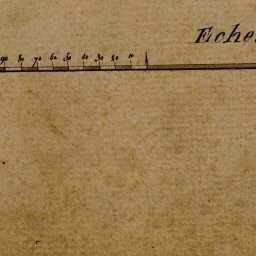 Eche
90 80 70 60 50 40 30 20 10